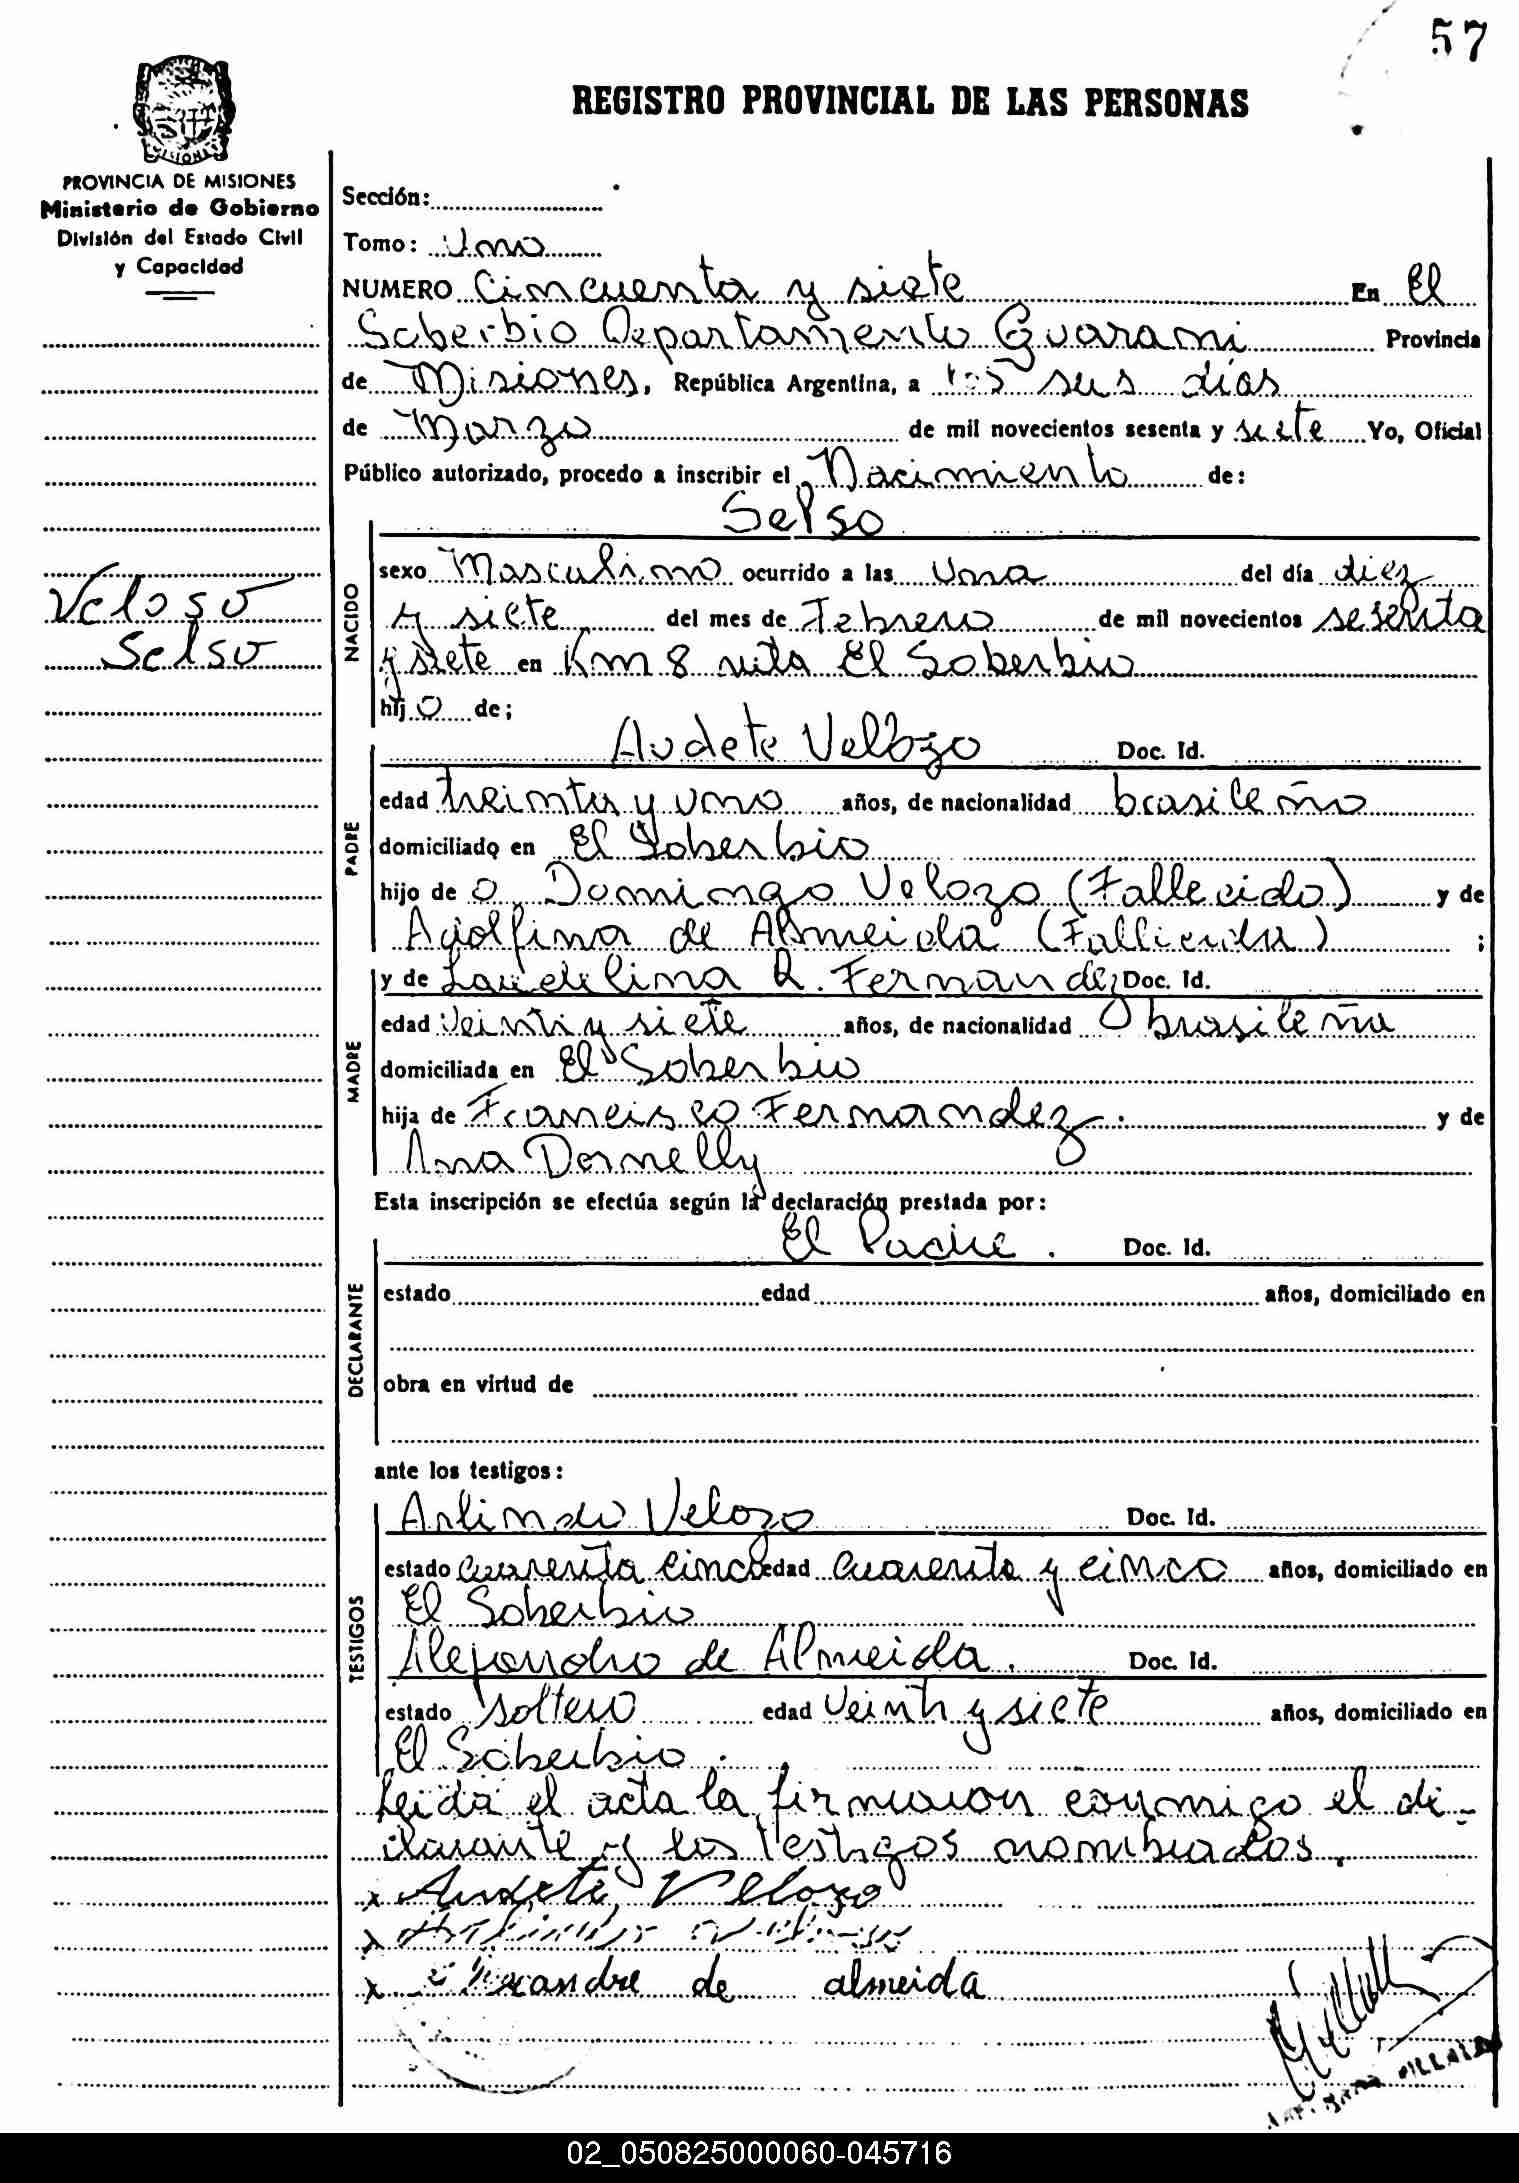 57
REGISTRO PROVINCIAL DE LAS PERSONAS
PROVINCIA DE MISIONES
Ministerio de Gobierno
División del Estado Civil
y Capacidad
Veloso
Selso
Sección:
Tomo: Uno
NUMERO Cincuenta y siete En El
Soberbio Departamento Guarani Provincia
de Misiones, República Argentina, a los seis días
de Marzo de mil novecientos sesenta y siete Yo, Oficial
Público autorizado, procedo a inscribir el Nacimiento de:
Selso
NACIDO
sexo Masculino ocurrido a las Una del día diez
y siete del mes de Febrero de mil novecientos sesenta
y siete en Km 8 ruta El Soberbio
hijo de;
PADRE
Audete Velozo Doc. Id.
edad treinta y uno años, de nacionalidad brasileño
domiciliado en El Soberbio
hijo de Domingo Velozo (Fallecido) y de
Adolfina de Almeida (Fallecida) ;
MADRE
y de Laudelina R. Fernandez Doc. Id.
edad Veinti y siete años, de nacionalidad brasileña
domiciliada en El Soberbio
hija de Francisco Fernandez. y de
Ana Dornelly
Esta inscripción se efectúa según la declaración prestada por:
DECLARANTE
El Padre. Doc. Id.
estado edad años, domiciliado en
obra en virtud de
ante los testigos:
TESTIGOS
Arlindo Velozo Doc. Id.
estado cuarenta cinco edad cuarenta y cinco años, domiciliado en
El Soberbio
Alejandro de Almeida. Doc. Id.
estado soltero edad Veinti y siete años, domiciliado en
El Soberbio.
Leida el acta la firmaron conmigo el de-
clarante y los testigos nombrados.
x Audete Velozo
x
x de almeida
02_050825000060-045716